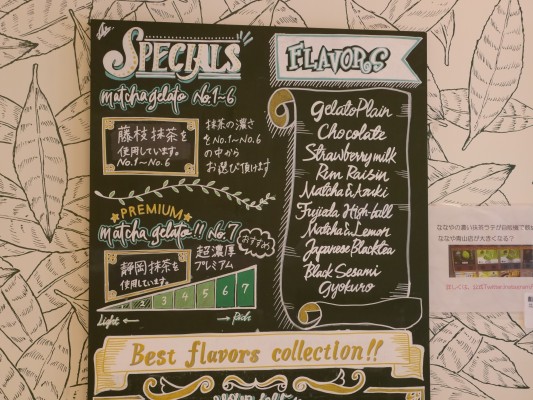 SPECIALS
matcha gelato No.1~6
藤枝抹茶を
使用しています。
No.1~No.6
抹茶の濃さ
をNo.1~No.6
の中から
お選び頂けます
PREMIUM
matcha gelato!! No.7
おすすめ
静岡抹茶を
使用しています。
超濃厚
プレミアム
2 3 4 5 6 7
Light ← → Rich
FLAVORS
Gelato Plain
Chocolate
Strawberry milk
Rum Raisin
Matcha & Azuki
Fujieda High-ball
Matcha & Lemon
Japanese Blacktea
Black Sesami
Gyokuro
Best flavors collection!!
ななやの濃い抹茶ラテが自販機で飲
ななや青山店が大きくなる?
詳しくは、公式Twitter,Instagram